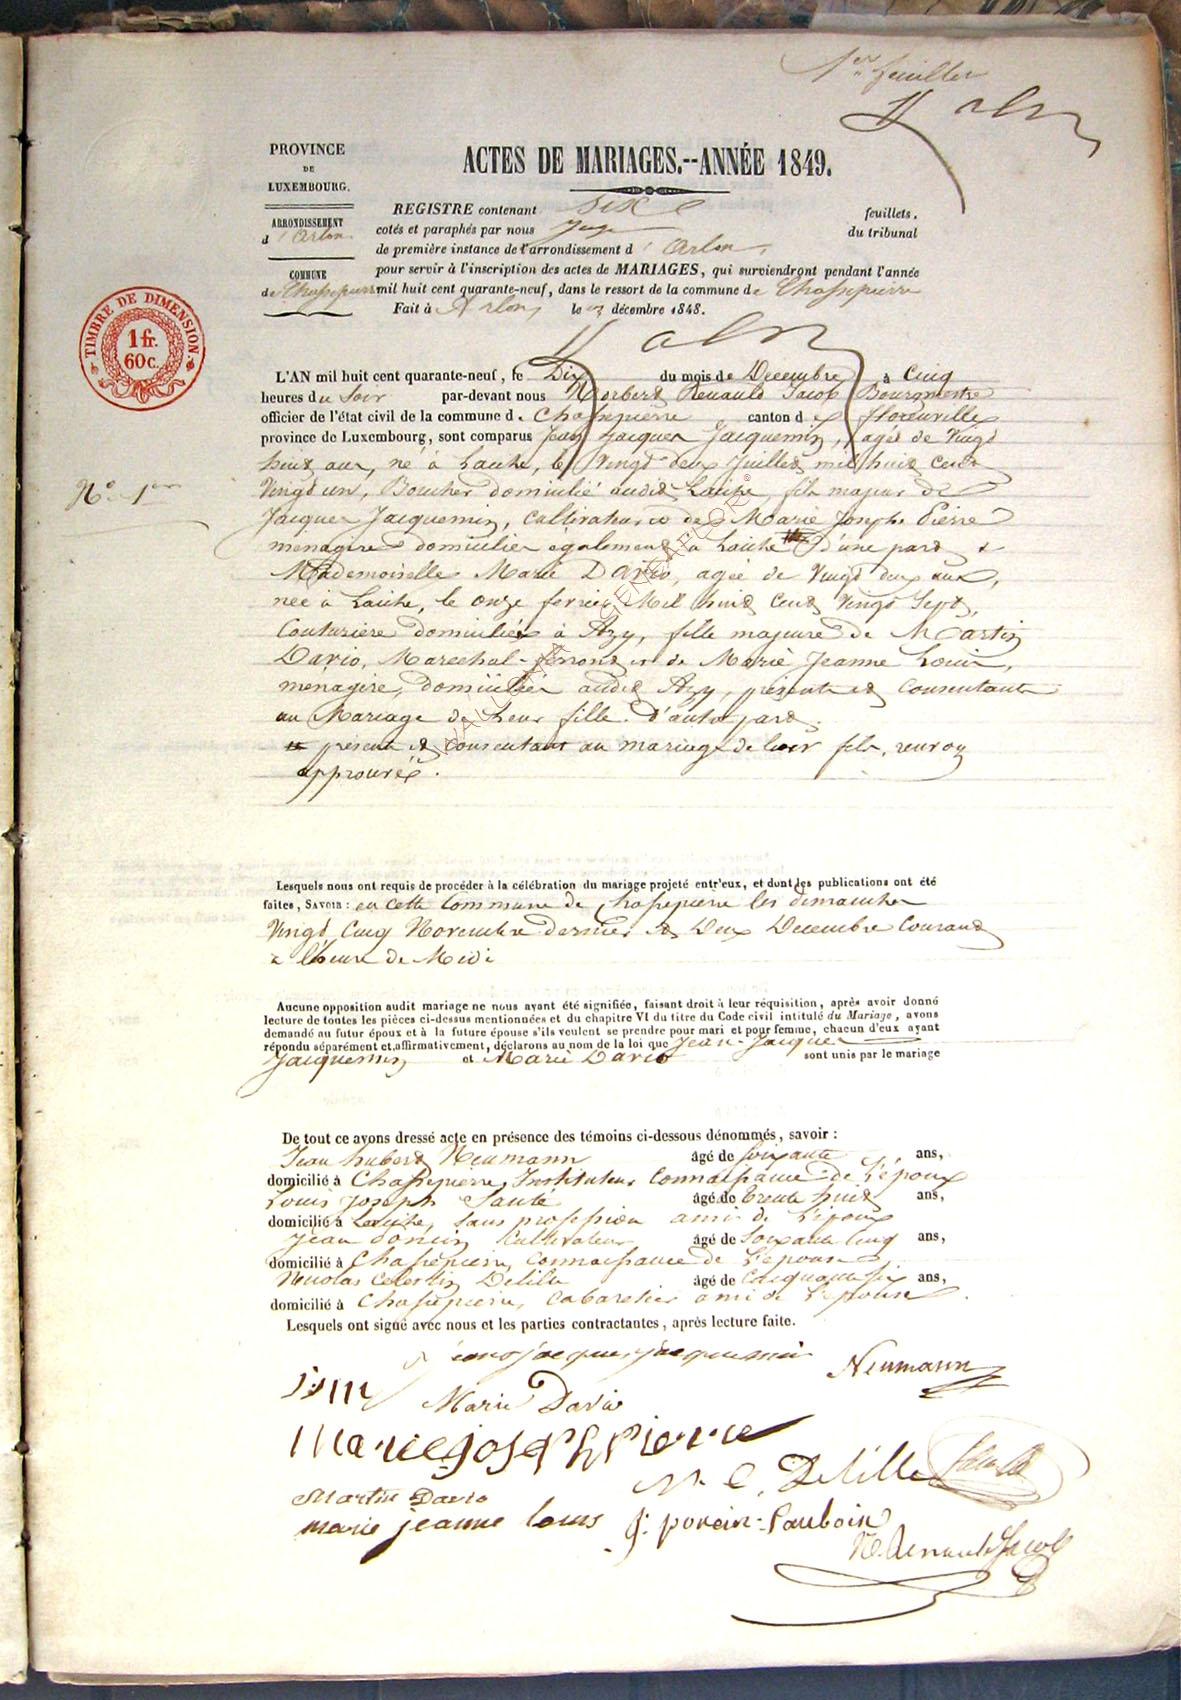 1er feuillet
PROVINCE
DE
LUXEMBOURG.
ARRONDISSEMENT
d'Arlon
COMMUNE
de Chassepierre
TIMBRE DE DIMENSION.
1 fr.
60 c.
ACTES DE MARIAGES.--ANNÉE 1849.
REGISTRE contenant six feuillets,
cotés et paraphés par nous Juge du tribunal
de première instance de l'arrondissement d'Arlon,
pour servir à l'inscription des actes de MARIAGES, qui surviendront pendant l'année
mil huit cent quarante-neuf, dans le ressort de la commune de Chassepierre
Fait à Arlon, le décembre 1848.
L'AN mil huit cent quarante-neuf, le Dix du mois de Decembre à Cinq
heures du Soir par-devant nous Norbert Renauld Jacob Bourgmestre
officier de l'état civil de la commune de Chassepierre canton de florenville
province de Luxembourg, sont comparus Jean Jacques Jacquemin, agé de Vingt
huit ans, né à Laiche, le Vingt deux Juillet mil huit Cent
N° 1er
Vingt un, Boucher domicilié audit Laiche, fils majeur de
Jacques Jacquemin, cultivateur et de Marie Josephe Pierre
ménagère domiciliés également à Laiche d'une part &
Mademoiselle Marie Dario, agée de Vingt deux ans,
née à Laiche, le onze fevrier Mil huit Cent Vingt Sept,
Couturière domiciliée à Azy, fille majeure de Martin
Dario, Marechal-ferrant et de Marie Jeanne Louis,
menagère, domiciliés audit Azy, présents et Consentants
au Mariage de Leur fille. d'autre part.
présents et consentant au mariage de leur fils, renvoy
approuvés.
Lesquels nous ont requis de procéder à la célébration du mariage projeté entr'eux, et dont les publications ont été
faites, SAVOIR : en cette Commune de Chassepierre les dimanches
Vingt Cinq Novembre dernier et Deux Decembre Courant
à l'heure de Midi
Aucune opposition audit mariage ne nous ayant été signifiée, faisant droit à leur réquisition, après avoir donné
lecture de toutes les pièces ci-dessus mentionnées et du chapitre VI du titre du Code civil intitulé du Mariage, avons
demandé au futur époux et à la future épouse s'ils veulent se prendre pour mari et pour femme, chacun d'eux ayant
répondu séparément et affirmativement, déclarons au nom de la loi que Jean-Jacques
Jacquemin et Marie Dario sont unis par le mariage
De tout ce avons dressé acte en présence des témoins ci-dessous dénommés, savoir :
Jean hubert Neumann âgé de soixante ans,
domicilié à Chassepierre, Instituteur Connaissance de l'époux
Louis Joseph Santé âgé de trente huit ans,
domicilié à Laiche, sans profession ami de l'époux
Jean Poncin Cultivateur âgé de Soixante Cinq ans,
domicilié à Chassepierre, Connaissance de l'epouse
Nicolas Celestin Delille âgé de Cinquante six ans,
domicilié à Chassepierre, Cabaretier ami de l'épouse.
Lesquels ont signé avec nous et les parties contractantes, après lecture faite.
jean jacques jacquemin
Neumann
Marie Dario
Marie joseph Pierre
N. C. Delille
Martin Dario
marie jeanne louis
J: poncin-Pauboin
N. Renauld Jacob